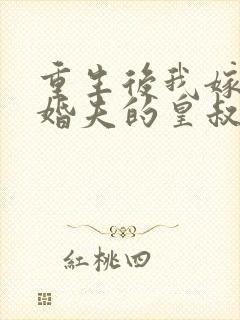 重生後我嫁
婚夫的皇叔
紅桃四